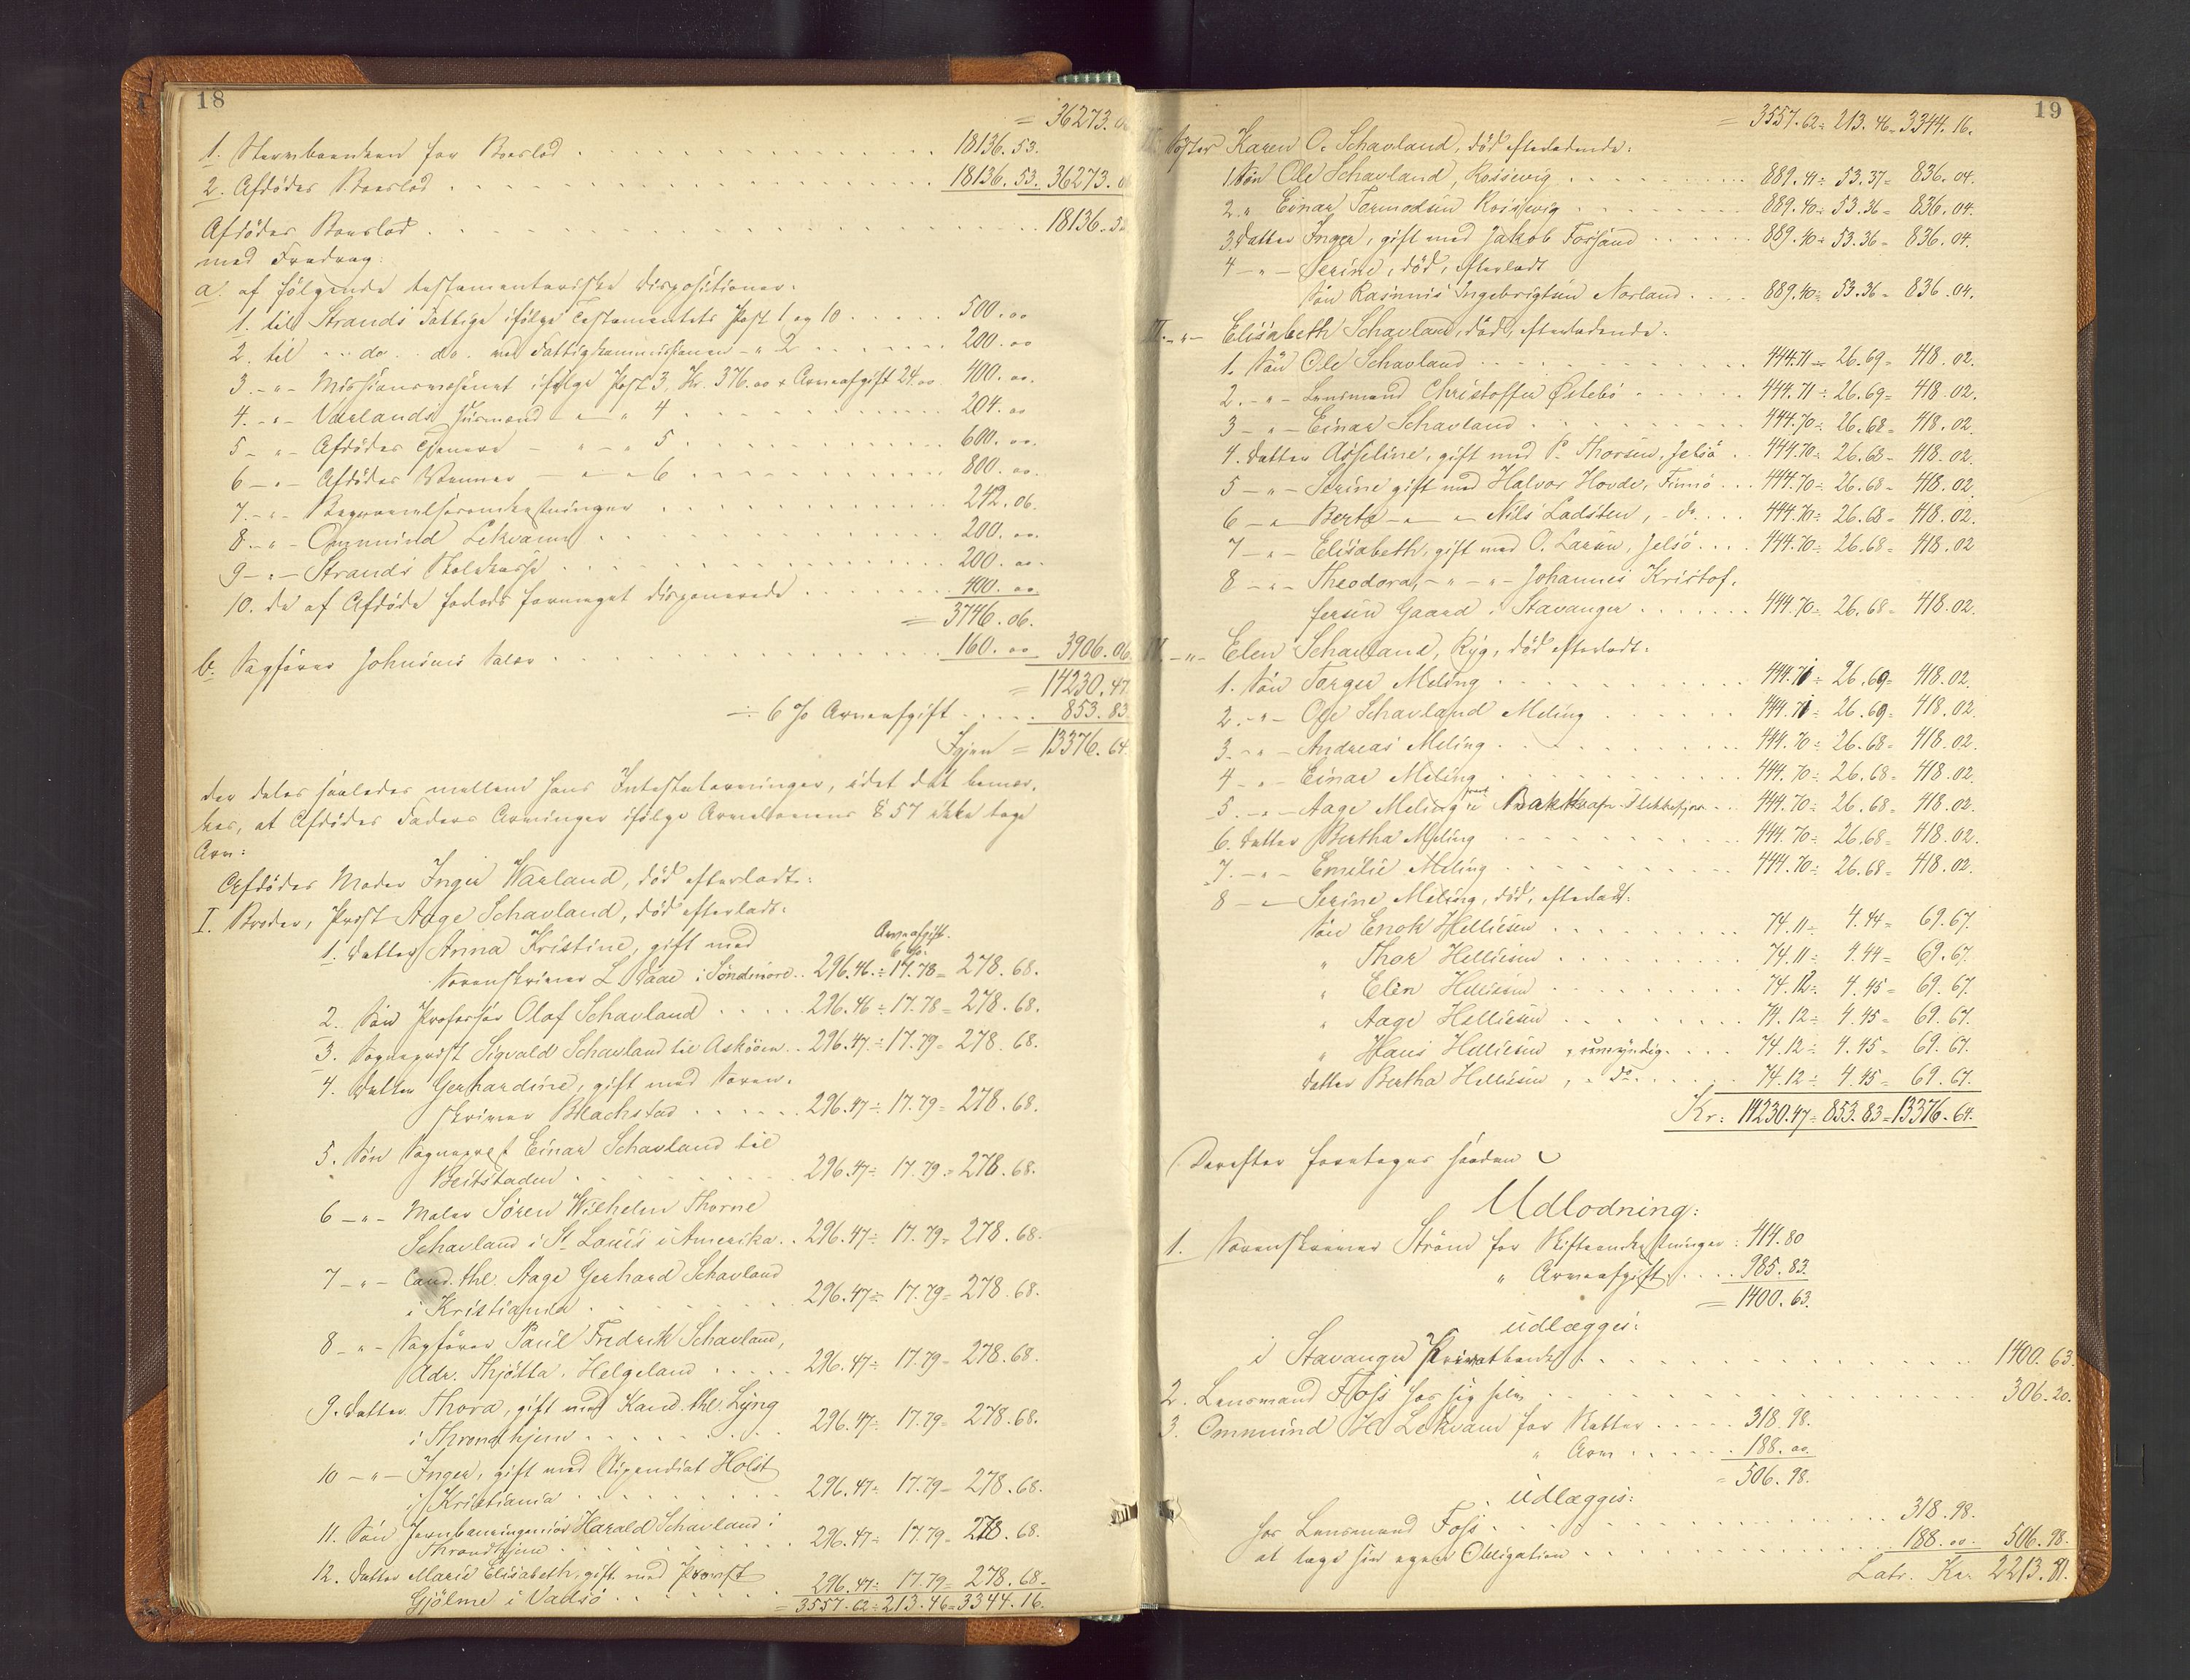 18
= 36273.0
1. Stervboenken for Boeslod . . . 18136.53.
2. Afdødes Boeslod . . . 18136.53. 36273.0
Afdødes Boeslod . . . 18136.5
med Fradrag:
a. af følgende testamentariske Dispositioner:
1. til Strands Fattige ifølge Testamentets Post 1 og 10 . . . 500.00
2. til " do. do. ved Fattigkommissionen - " 2 . . . 200.00
3. - " - Missionsvæsenet ifølge Post 3, Kr. 376.00 + Arveafgift 24.00 400.00.
4. - " - Varlands Husmænd - " - " 4 . . . 204.00
5 - " - Afdødes Tjenere - " - " 5 . . . 600.00.
6 - " - Afdødes Venner - " - " 6 . . . 800.00.
7. - " - Begravelsesomkostninger . . . 242.06.
8. - " - Ommund Lekvam . . . 200.00.
9 - " - Strands Skolekasse . . . 200.00.
10. de af Afdøde forlods formeget disponerede . . . 400.00.
= 3746.06.
b. Sagfører Johnsens Salær . . . 160.00 3906.06
= 14230.47
÷ 6 % Arveafgift . . . 853.83
Igjen = 13376.64
der deles saaledes mellem hans Intestatarvinger, idet det bemær-
kes, at Afdødes Faders Arvinger ifølge Arvelovens § 57 ikke tage
Arv:
Afdødes Moder Inger Warland, død efterladt:
I. Broder, Prost Aage Schavland, død efterladt:
1. Datter Anna Kristine, gift med
Arveafgift.
6 %.
Sorenskriver L. Daae i Søndmøre . . 296.46 ÷ 17.78 = 278.68.
2. Søn Professor Olaf Schavland . . . 296.46 ÷ 17.78 = 278.68.
3. Sogneprest Sigvald Schavland til Askøen . . 296.47 ÷ 17.79 = 278.68.
4. Datter Gerhardine, gift med Soren-
skriver Blachstad . . . 296.47 ÷ 17.79 = 278.68.
5. Søn Sogneprest Einar Schavland til
Beitstaden . . . 296.47 ÷ 17.79 = 278.68.
6 - " - Maler Søren Wilhelm Thorne
Schavland i St. Louis i Amerika . . 296.47 ÷ 17.79 = 278.68.
7 - " - Cand. thl. Aage Gerhard Schavland
i Kristiania . . . 296.47 ÷ 17.79 = 278.68.
8 - " - Sagfører Paul Fredrik Schavland,
Adr. Thjøtta, Helgeland . . . 296.47 ÷ 17.79 = 278.68.
9. Datter Thora, gift med Kand. thl. Lyng
i Throndhjem . . . 296.47 ÷ 17.79 = 278.68.
10 - " - Inger, gift med Stipendiat Holst
i Kristiania . . . 296.47 ÷ 17.79 = 278.68.
11. Søn Jernbaneingeniør Harald Schavland i
Throndhjem . . . 296.47 ÷ 17.79 = 278.68.
12. Datter Marie Elisabeth, gift med Provst
Gjølme i Vadsø . . . 296.47 ÷ 17.79 = 278.68.
= 3557.62 ÷ 213.46 = 3344.16.
19
= 3557.62 ÷ 213.46 = 3344.16.
II. Søster Karen O. Schavland, død efterladende:
1. Søn Ole Schavland, Rossevig . . . 889.41 ÷ 53.37 = 836.04.
2. " Einar Tormodsen Rossevig . . . 889.40 ÷ 53.36 = 836.04.
3. Datter Inger, gift med Jakob Forsand . . . 889.40 ÷ 53.36 = 836.04.
4 - " - Serine, død, efterladt
Søn Rasmus Ingebrigtsen Norland . . . 889.40 ÷ 53.36 = 836.04.
III. - " - Elisabeth Schavland, død, efterladende:
1. Søn Ole Schavland . . . 444.71 ÷ 26.69 = 418.02.
2. - " - Lensmand Christoffer Østebø . . . 444.71 ÷ 26.69 = 418.02.
3 - " - Einar Schavland . . . 444.70 ÷ 26.68 = 418.02.
4. Datter Asseline, gift med P. Thorsen, Jelsø . . 444.70 ÷ 26.68 = 418.02.
5 - " - Serine gift med Halvor Hovde, Finnø . . . 444.70 ÷ 26.68 = 418.02.
6 - " - Berta - " - " Nils Ladsten, - do . . . 444.70 ÷ 26.68 = 418.02.
7 - " - Elisabeth, gift med O. Larsen, Jelsø . . . 444.70 ÷ 26.68 = 418.02
8 - " - Theodora, - " - " - Johannes Kristof-
fersen Gaard i Stavanger . . . 444.70 ÷ 26.68 = 418.02.
IV. - " - Elen Schavland, Ryg, død efterladt:
1. Søn Torger Meling . . . 444.71 ÷ 26.69 = 418.02.
2. - " - Ole Schavland Meling . . . 444.71 ÷ 26.69 = 418.02.
3. - " - Andreas Meling . . . 444.70 ÷ 26.68 = 418.02.
4 - " - Einar Meling . . . 444.70 ÷ 26.68 = 418.02.
5. - " - Aage Meling i . . . 444.70 ÷ 26.68 = 418.02.
6. Datter Bertha Meling . . . 444.70 ÷ 26.68 = 418.02.
7. - " - Emelie Meling . . . 444.70 ÷ 26.68 = 418.02.
8 - " - Serine Meling, død, efterladt:
Søn Enok Helliesen . . . 74.11 ÷ 4.44 = 69.67.
" Thor Helliesen . . . 74.11 ÷ 4.44 = 69.67.
" Elen Helliesen . . . 74.12 ÷ 4.45 = 69.67.
" Aage Helliesen . . . 74.12 ÷ 4.45 = 69.67.
" Hans Helliesen, umyndig . . . 74.12 ÷ 4.45 = 69.67.
Datter Bertha Helliesen, - do . . . 74.12 ÷ 4.45 = 69.67.
Kr: 14230.47 ÷ 853.83 = 13376.64.
Derefter foretages saadan
Udlodning:
1. Sorenskriver Strøm for Skifteomkostninger : 414.80
" Arveafgift . . . 985.83.
= 1400.63.
udlægges:
i Stavanger Privatbank . . . 1400.63.
2. Lensmand Foss hos sig selv . . . 306.20.
3. Ommund H. Lekvam for Skatter . . . 318.98.
" Arv . . . 188.00.
= 506.98.
udlægges:
hos Lensmand Foss . . . 318.98.
at tage sin egen Obligation . . . 188.00. 506.98.
Latr. Kr. 2213.81.